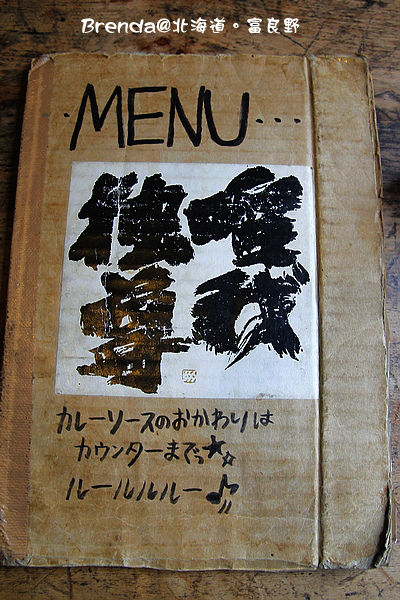 Brenda@北海道。富良野
·MENU...
唯我
独尊
カレーソースのおかわりは
カウンターまでっ★☆
ルールルルー♪